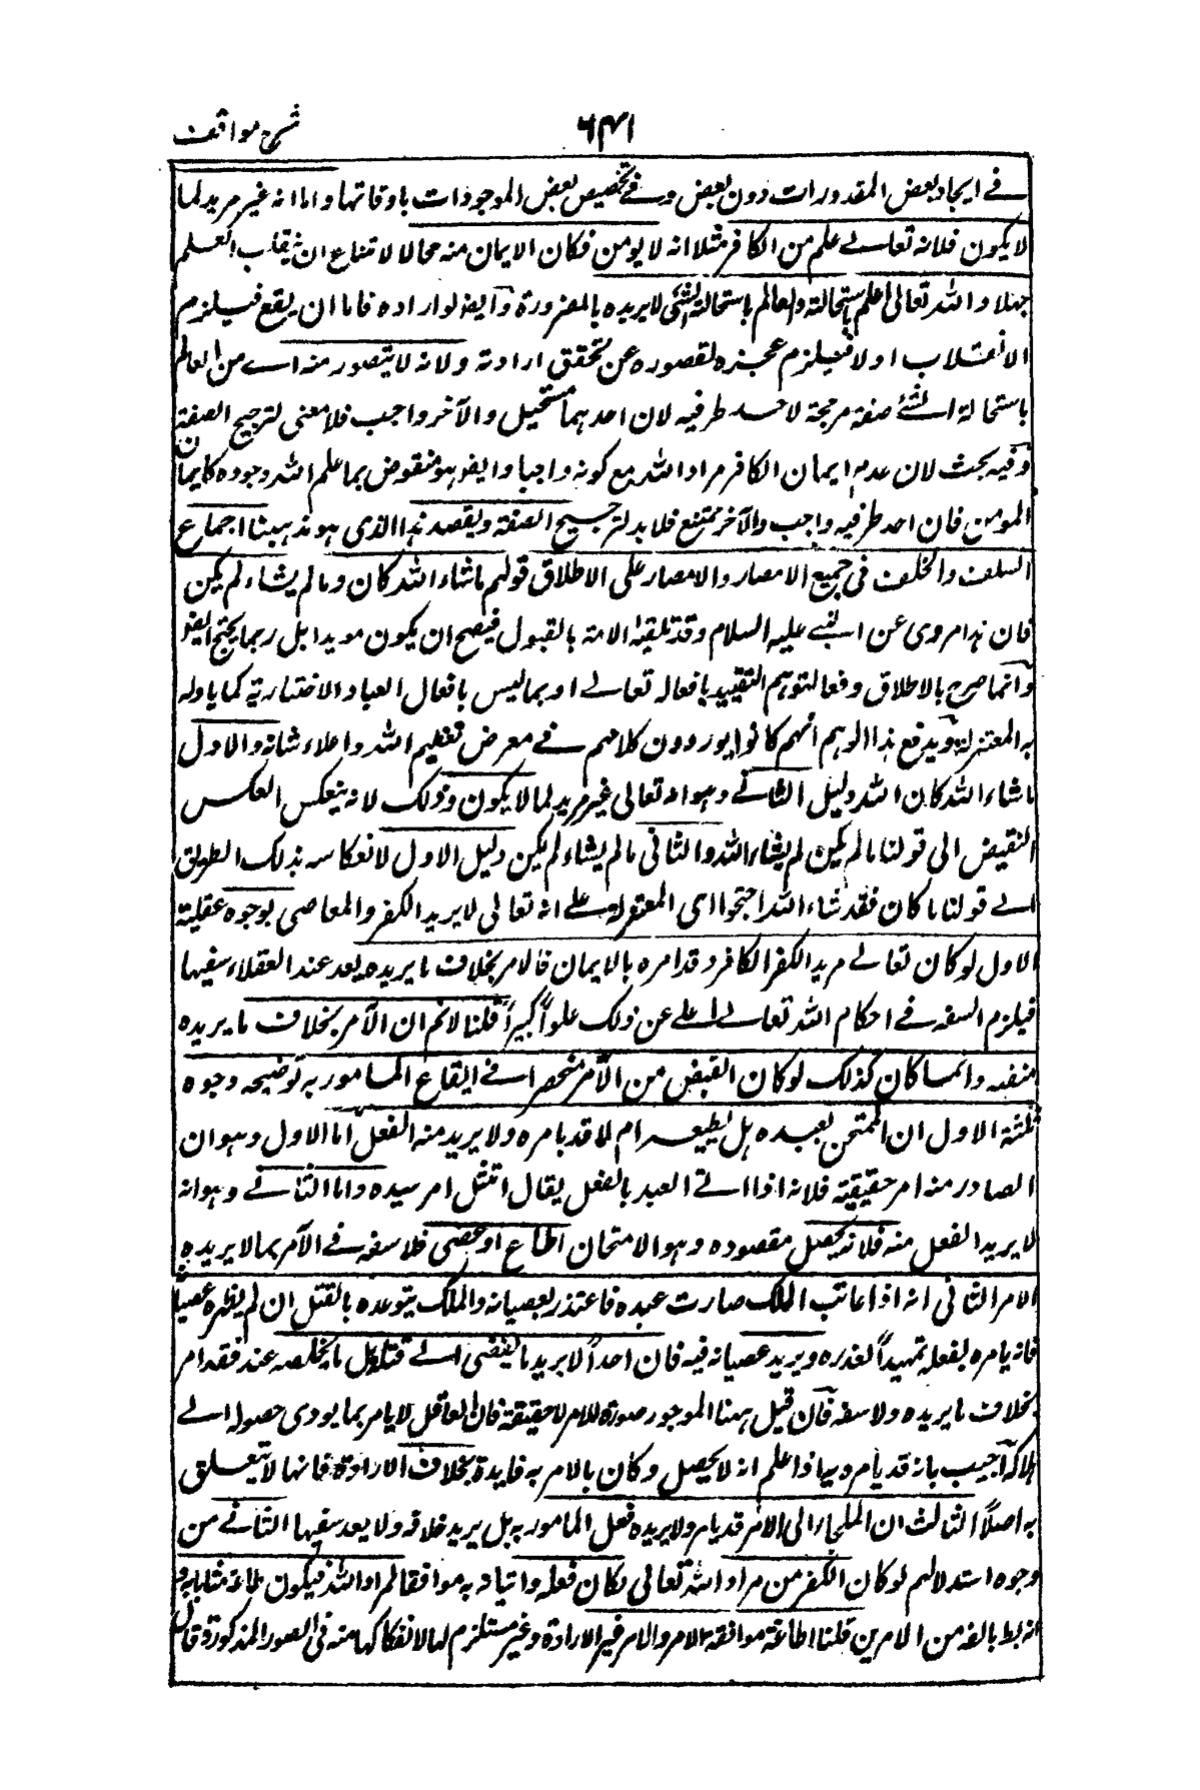 شرح مواقف
٦٤١
في ايجاد بعض المقدورات دون بعض وفي تخصيص بعض الموجودات باوقاتها واما انه غير مريد لما
لا يكون فلانه تعالى علم من الكافر مثلا انه لا يومن فكان الايمان منه محالا لامتناع ان ينقلب العلم
جهلا والله تعالى اعلم باستحالته والعالم باستحالة الشئ لا يريده بالضرورة وايضا لو اراده فاما ان يقع فيلزم
الانقلاب اولا فيلزم عجزه لقصوره عن تحقق ارادته ولانه لا يتصور منه اے من العالم
باستحالة الشئ صفة مرجحة لاحد طرفيه لان احدهما مستحيل والآخر واجب فلا معنى لترجيح الصفة
وفيه بحث لان عدم ايمان الكافر مراد الله مع كونه واجبا وايضا هو منقوض بما علم الله وجوده كايمان
المومن فان احد طرفيه واجب والآخر ممتنع فلا بد لترجيح الصفة ويقصد هذا الذى هو مذهبنا اجماع
السلف والخلف فى جميع الامصار والاعصار على الاطلاق قولهم ماشاء الله كان ومالم يشاء لم يكن
فان هذا مروى عن النبى عليه السلام وقد تلقته الامة بالقبول فيصح ان يكون مويدا بل ربما يحتج به ايضا
وانما صرح بالاطلاق دفعا لتوهم التقييد بافعاله تعالى او بما ليس بافعال العباد الاختيارية كما ياوله
به المعتزلة ويدفع هذا الوهم انهم كانوا يوردون كلامهم في معرض تعظيم الله واعلاء شانه والاول
ماشاء الله كان الله دليل الثانى وهو انه تعالى غير مريد لما لا يكون وذلك لانه ينعكس العكس
النقيض الى قولنا مالم يكن لم يشاء الله والثانى مالم يشاء لم يكن دليل الاول لانعكاسه بذلك الطريق
الى قولنا ما كان فقد شاء الله احتجوا اى المعتزلة على انه تعالى لا يريد الكفر والمعاصى بوجوه عقلية
الاول لو كان تعالى مريدا لكفر الكافر وقد امره بالايمان فالامر بخلاف ما يريده يعد عند العقلاء سفيها
فيلزم السفه في احكام الله تعالى الله على عن ذلك علواً كبيراً قلنا لانم ان الآمر بخلاف ما يريده
سفيه وانما كان كذلك لو كان الغرض من الآمر منحصرا في ايقاع المامور به توضيحه وجوه
ثلثة الاول ان الممتحن لعبده هل يطيعه ام لا قد يامره ولا يريد منه الفعل اما الاول وهو ان
الصادر منه امر حقيقة فلانه اذا اتى العبد بالفعل يقال امتثل امر سيده واما الثانى وهو انه
لا يريد الفعل منه فلانه يحصل مقصوده وهو الامتحان اطاع او عصى فلا سفه في الآمر بما لا يريده
الامر الثانى انه اذا عاتب الملك ضارب عبده فاعتذر بعصيانه والملك يتوعده بالقتل ان لم يظهر عصيانه
فانه يامره بفعله تمهيداً لعذره ويريد عصيانه فيه فان احداً لا يريد ما يفضى الى قتله بل ما يخلصه عنه فقد امر
بخلاف ما يريده ولا سفه فان قيل ههنا الموجود صورة للامر لا حقيقته فان العاقل لا يامر بما يودى حصوله الى
هلاكه اجيب بانه قد يامر به اذا علم انه لا يحصل وكان بالامر به فايدة بخلاف الارادة فانها لا تتعلق
به اصلاً الثالث ان الملجاء الى الامر قد يامر ولا يريد فعل المامور به بل يريد خلافه ولا يعد سفيها الثانى من
وجوه استدلالهم لو كان الكفر من مراد الله تعالى لكان فعله واتيانه به موافقا لمراد الله فيكون طاعة مثابا به و
انه باطل بالضرورة من الامرين قلنا اطاعة موافقة الامر والامر غير الارادة وغير مستلزم لها لانفكاكها منه فى الصور المذكورة وقال